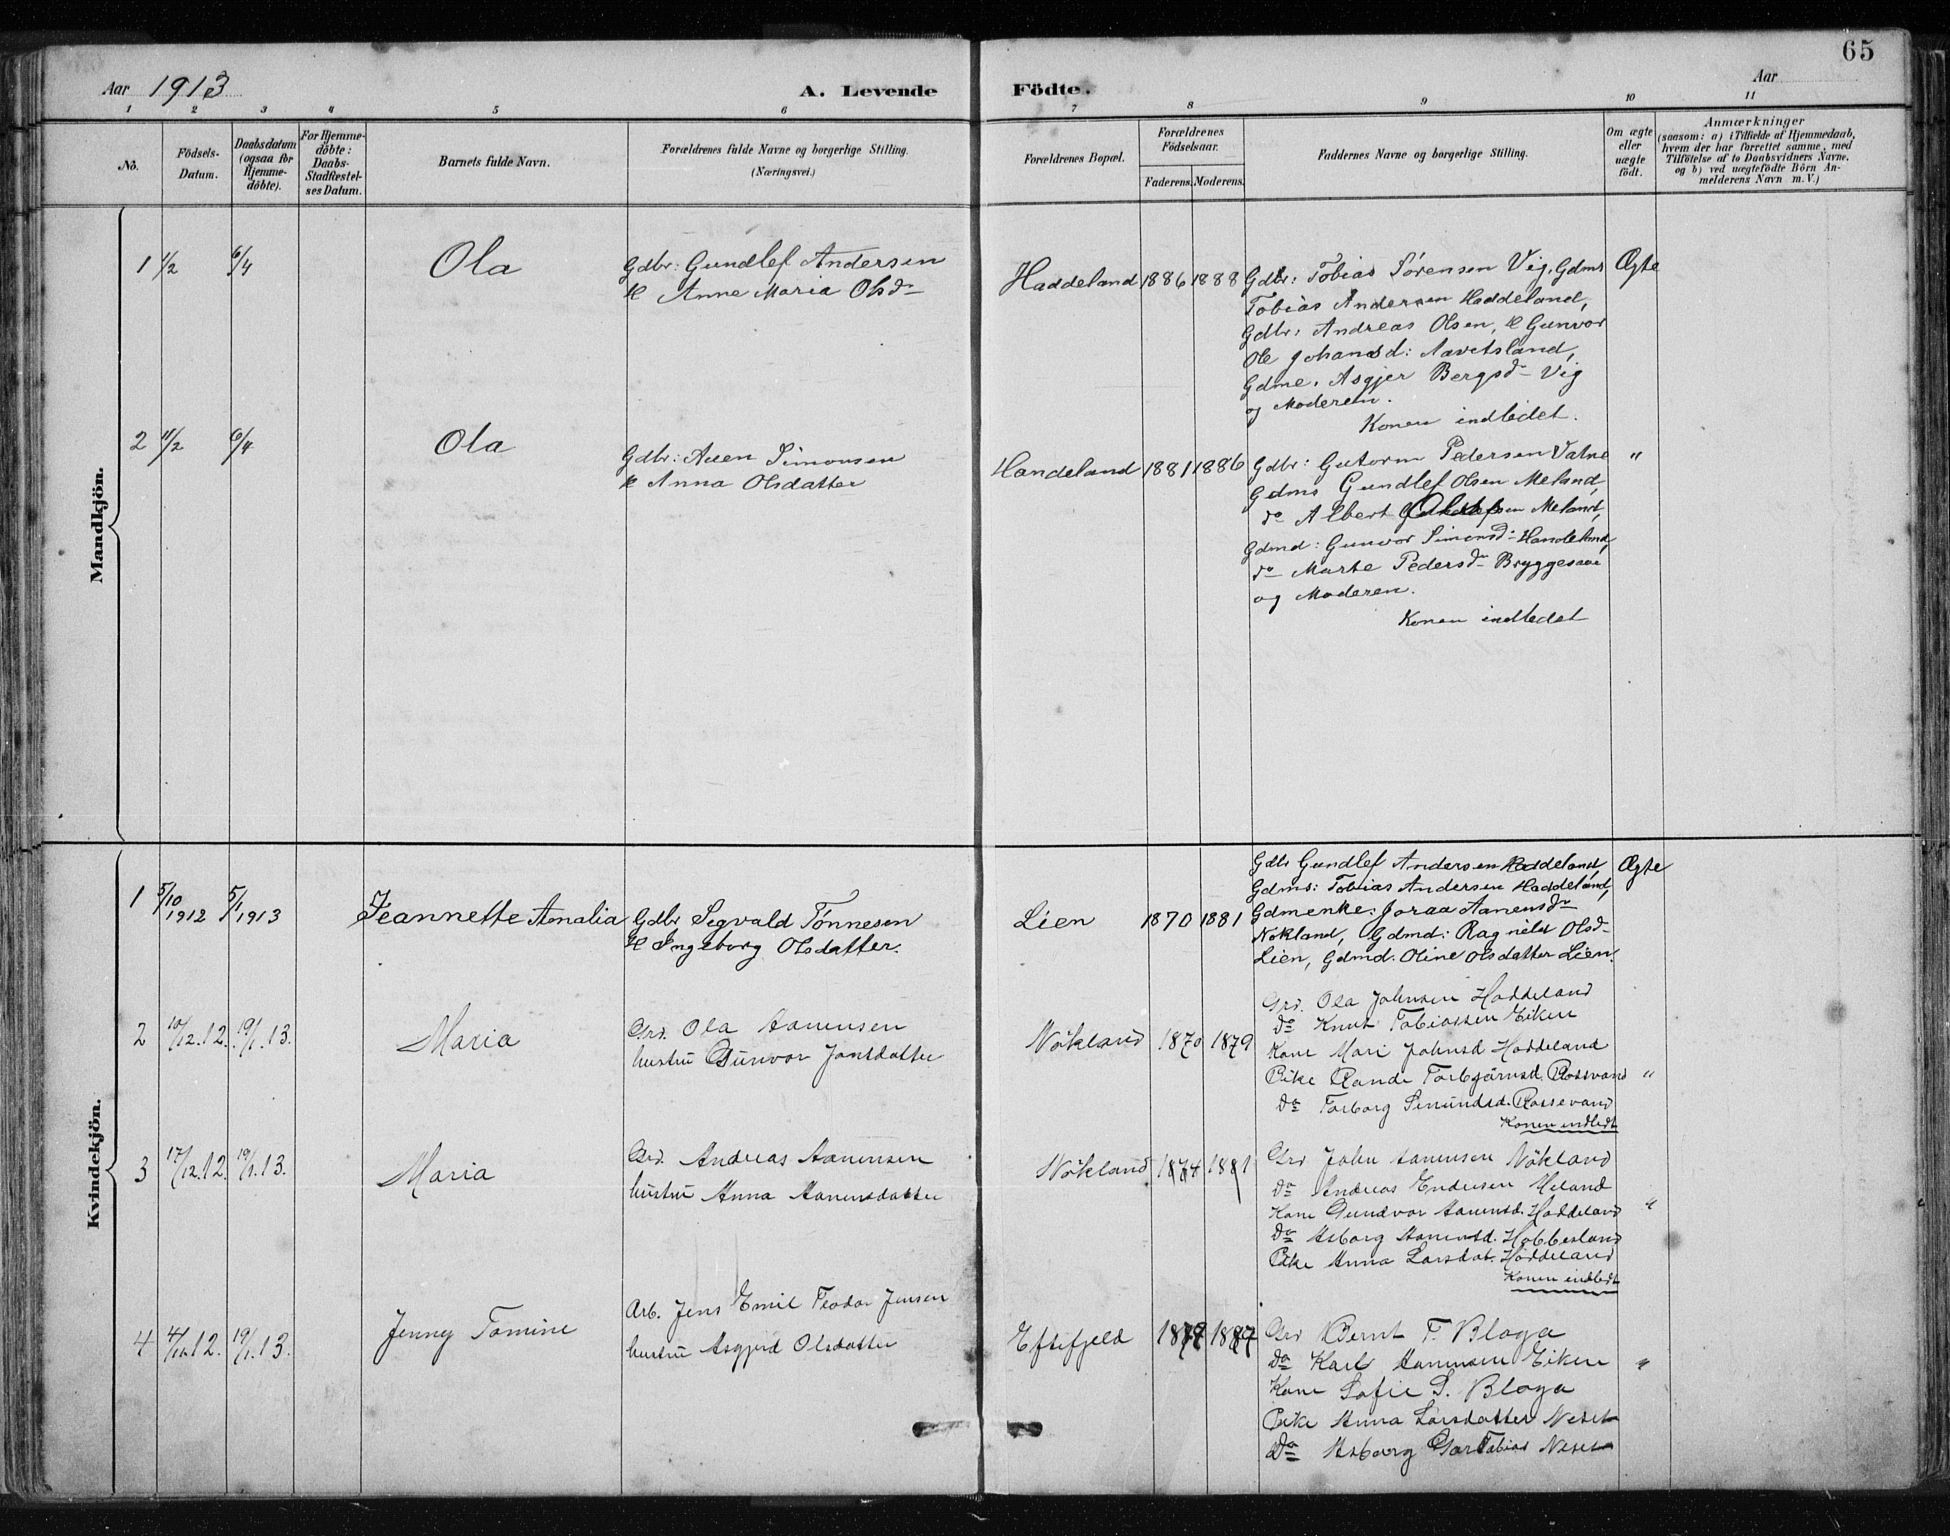 65
Aar 1913
A. Levende
Födte.
Aar
1 2 3 4 5 6 7 8 9 10 11
No.
Födsels-Datum.
Daabsdatum (ogsaa for Hjemme-döbte).
For Hjemme-döbte: Daabs-Stadfæstel-ses Datum.
Barnets fulde Navn.
Forældrenes fulde Navne og borgerlige Stilling.
(Næringsvei.)
Forældrenes Bopæl.
Forældrenes Födselsaar.
Faderens. Moderens.
Faddernes Navne og borgerlige Stilling.
Om ægte eller uægte födt.
Anmærkninger
(saasom: a) i Tilfælde af Hjemmedaab,
hvem der har forrettet samme, med
Tilföielse af to Daabsvidners Navne.
og b) ved uægtefödte Börn An-
melderens Navn m. V.)
Mandkjön.
1 1/2 6/4 Ola
Gdbr: Gundlef Andersen
H Anne Maria Olsdr
Haddeland 1886 1888
Gdbr: Tobias Sørensen Vig, Gdms
Tobias Andersen Haddeland,
Gdbr: Andreas Olsen, H Gunvor
Ole Johansd: Navetsland,
Gdme. Asgjer Bergsdr Vig
og Moderen.
Konen indledet.
Ægte
2 11/2 6/4 Ola
Gdbr: Aaen Simonsen
H Anna Olsdatter
Handeland 1881 1886
Gdbr: Gutorm Pedersen Vatne
Gdms Gundlef Olsen Meland,
do Albert Meland,
Gdmd: Gunvor Simonsd: Handeland,
do Marte Pedersdr Bryggesaae
og Moderen.
Konen indledet
"
Kvindekjön.
1 5/10 1912 5/1 1913 Jeannette Amalia
Gdbr Segvald Tønnesen
H Ingeborg Olsdatter.
Lien 1870 1881
Gdbr Gundlef Andersen Haddeland,
Gdms: Tobias Andersen Haddeland,
Gdmenke: Joraa Aanensdr
Nøkland, Gdmd: Ragnild Olsd-
Lien, Gdmd. Oline Olsdatter Lien.
Ægte
2 10/12.12. 19/1.13. Maria
Grd. Ola Aanensen
hustru Gunvor Jonsdatter
Nökland 1870 1879
Grd. Ola Johnsen Haddeland
Do Knut Tobiassen Eiken
Kone Mari Johnsd Haddeland
Pike Rande Torbjörnsd. Rossevand
Do Torborg Semundsd. Rossevand
Konen indledt
"
3 17/12.12. 19/1.13. Maria
Grd. Andreas Aanensen
hustru Anna Aanensdatter
Nökland 1874 1881
Grd John Aanensen Nökland
Do Andreas Endresen Meland
Kone Gundvor Aanensd. Haddeland
Do Asborg Aanensd. Hobbesland
Pike Anna Larsdat. Haddeland
Konen indledt
"
4 12. 19/1.13. Jenny Tomine
Arb. Jens Emil Teodor Jensen
hustru Asgjerd Olsdatter
Eftefjeld 1887
Grd Bernt T. Blaga
Do Karl Aanensen Eiken
Kone Sofie S. Blaga
Pike Anna Larsdatter Neset
Do Asborg Tobias Neset
"